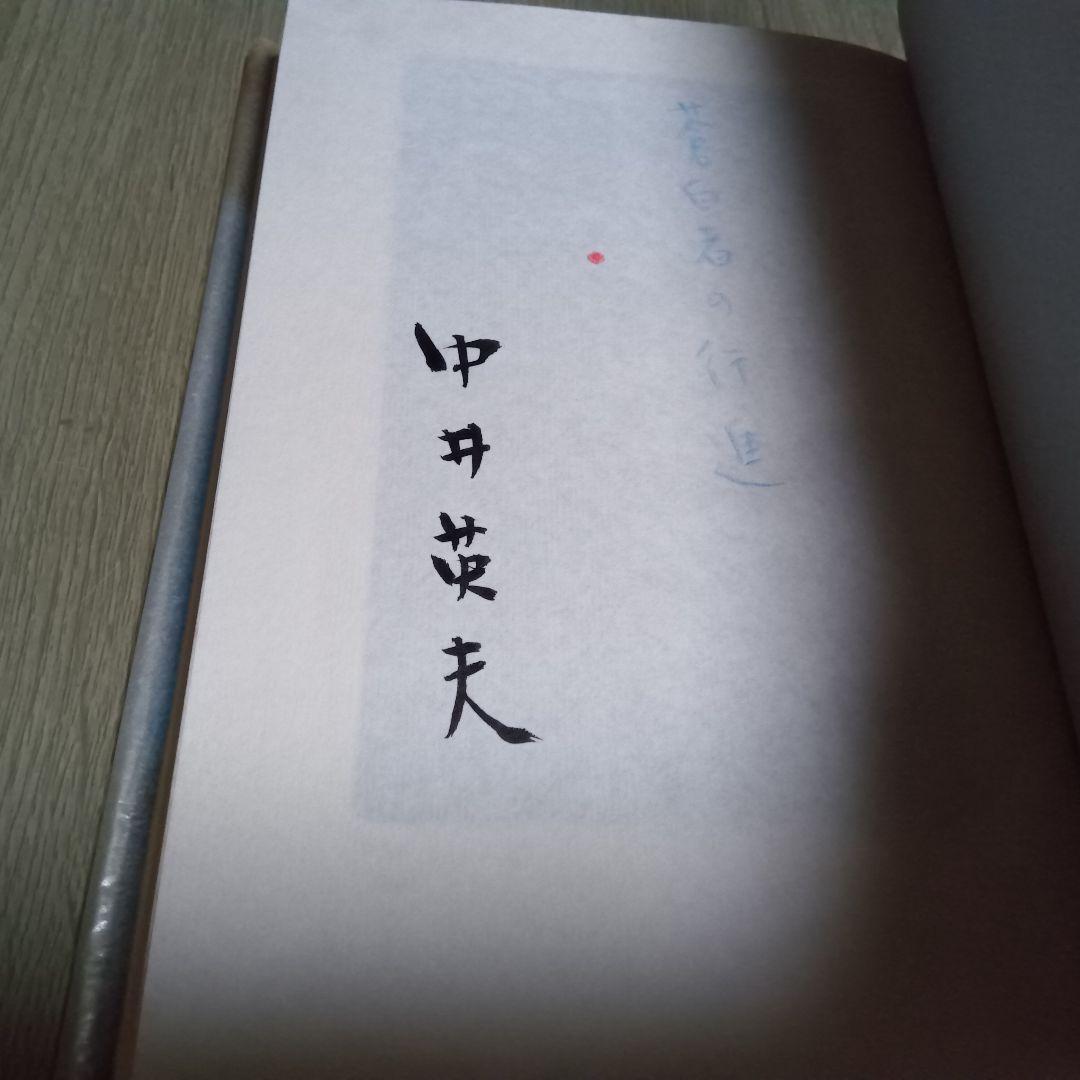 蒼白者の行進
中井英夫